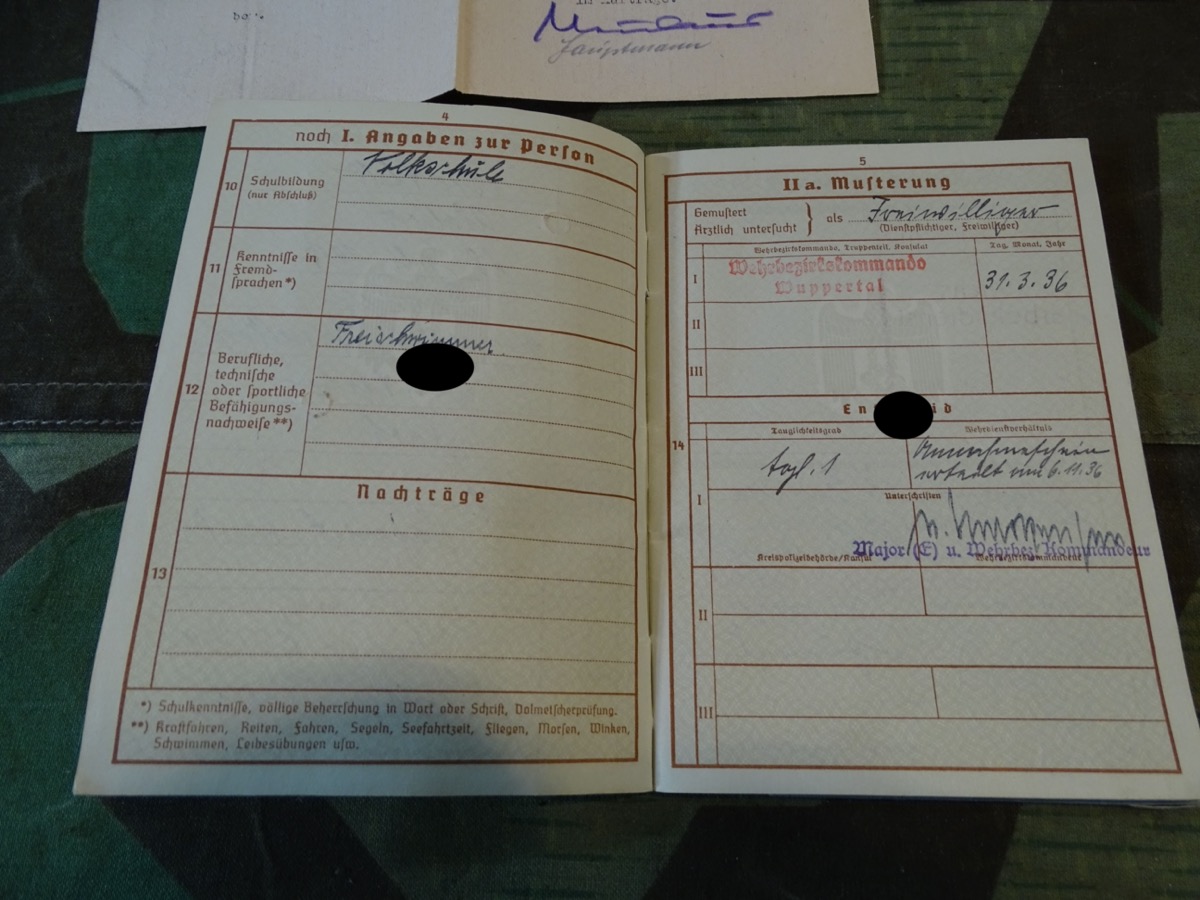 Hauptmann
4
noch I. Angaben zur Person
10
Schulbildung
(nur Abschluß)
Volkschule
11
Kenntnisse in
Fremd-
sprachen *)
12
Berufliche,
technische
oder sportliche
Befähigungs-
nachweise **)
Freischwimmer
Nachträge
13
*) Schulkenntnisse, völlige Beherrschung in Wort oder Schrift, Dolmetscherprüfung.
**) Kraftfahren, Reiten, Fahren, Segeln, Seefahrtzeit, Fliegen, Morsen, Winken,
Schwimmen, Leibesübungen usw.
5
IIa. Musterung
Gemustert
Ärztlich untersucht } als Freiwilliger
(Dienstpflichtiger, Freiwilliger)
Wehrbezirkskommando, Truppenteil, Konsulat
Tag, Monat, Jahr
I
Wehrbezirkskommando
Wuppertal
31.3.36
II
III
En id
14
Tauglichkeitsgrad
Wehrdienstverhältnis
I
tgl. 1
Annahmeschein
erteilt am 6.11.36
Unterschriften
Major (E) u. Wehrbez. Kommandeur
Kreispolizeibehörde/Konsul
Wehrbezirkskommandeur
II
III